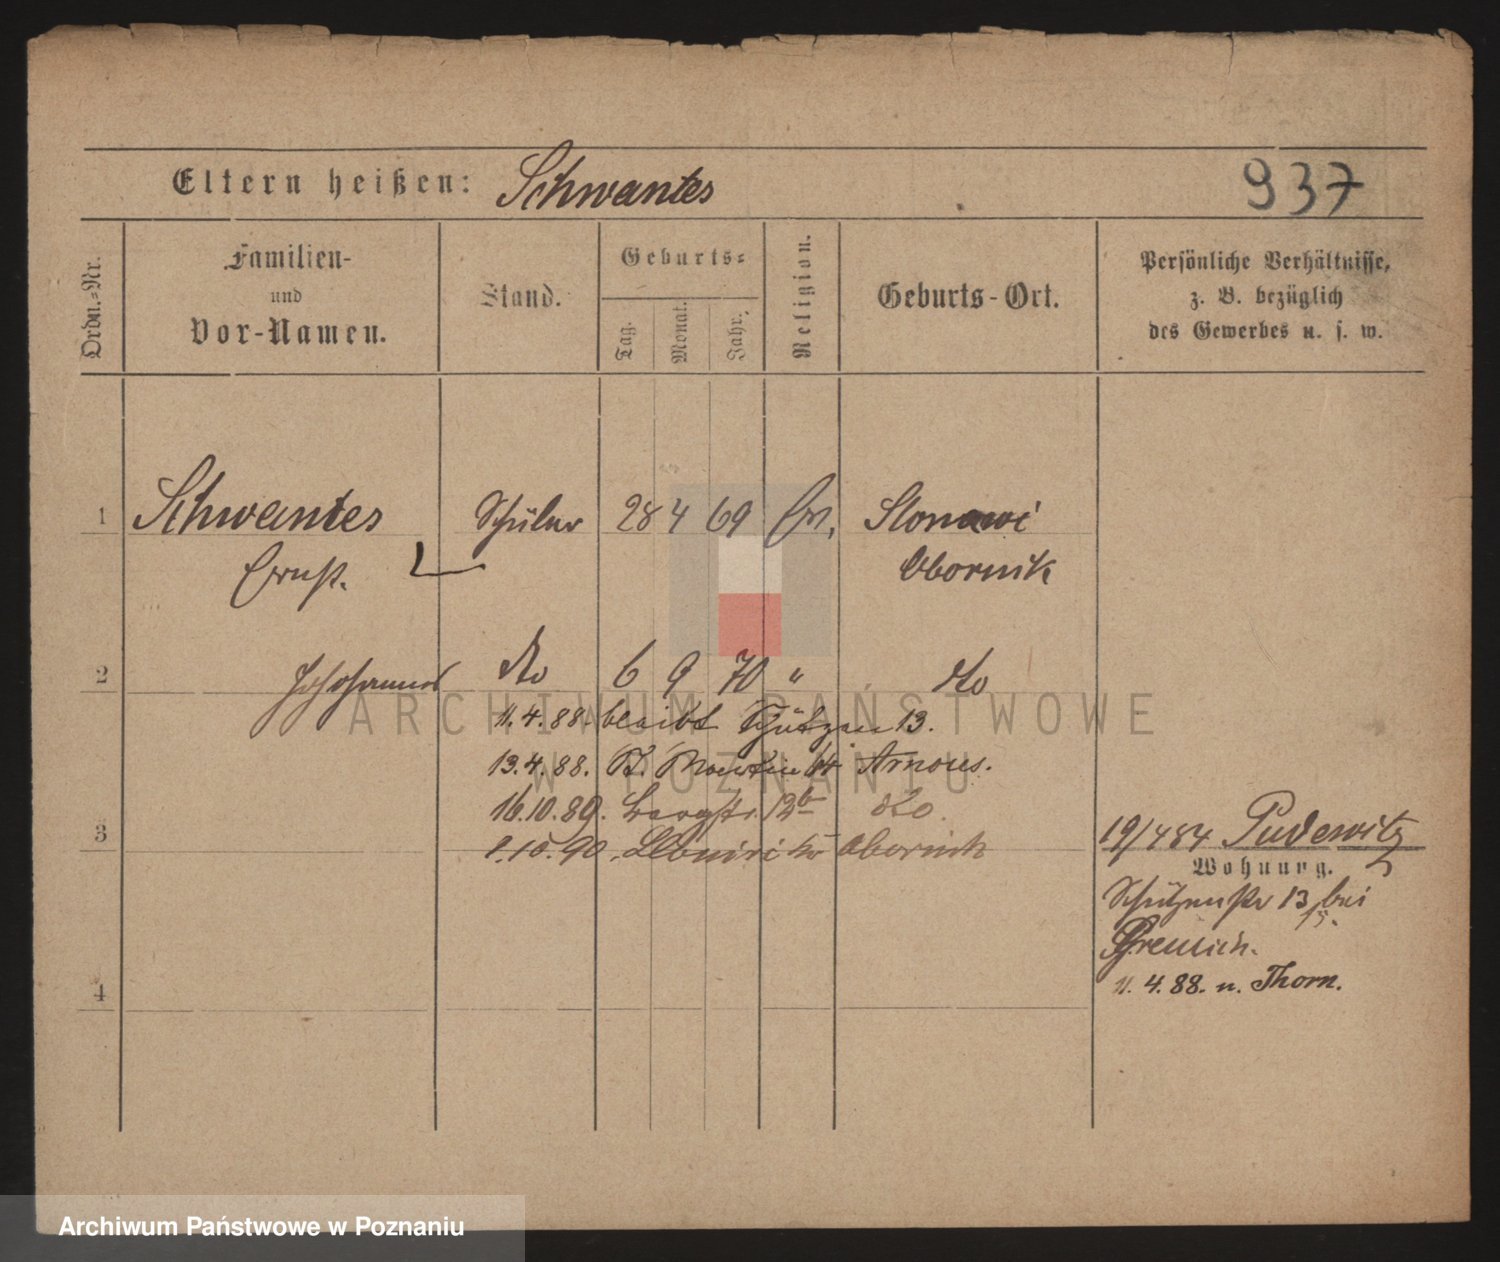 Eltern heißen: Schwantes 937
Ordn.=Nr.
Familien-
und
Vor-Namen.
Stand.
Geburts=
Tag.
Monat.
Jahr.
Religion.
Geburts-Ort.
Persönliche Verhältnisse,
z. B. bezüglich
des Gewerbes u. s. w.
1 Schwantes Schüler 28 4 69 Ev. Slonawi
Ernst. Obornik
2 Johannes dto 6 9 70 " dto
11.4.88. bleibt Schützen 13.
13.4.88. St. Martin Arnous.
16.10.89. Bergstr. 12b dto.
3 1.10.90. Obornik
19/4 84 Pudewitz
Wohnung.
Schützenstr 13 bei
4 11.4.88. n. Thorn.
ARCHIWUM PAŃSTWOWE
W POZNANIU
Archiwum Państwowe w Poznaniu